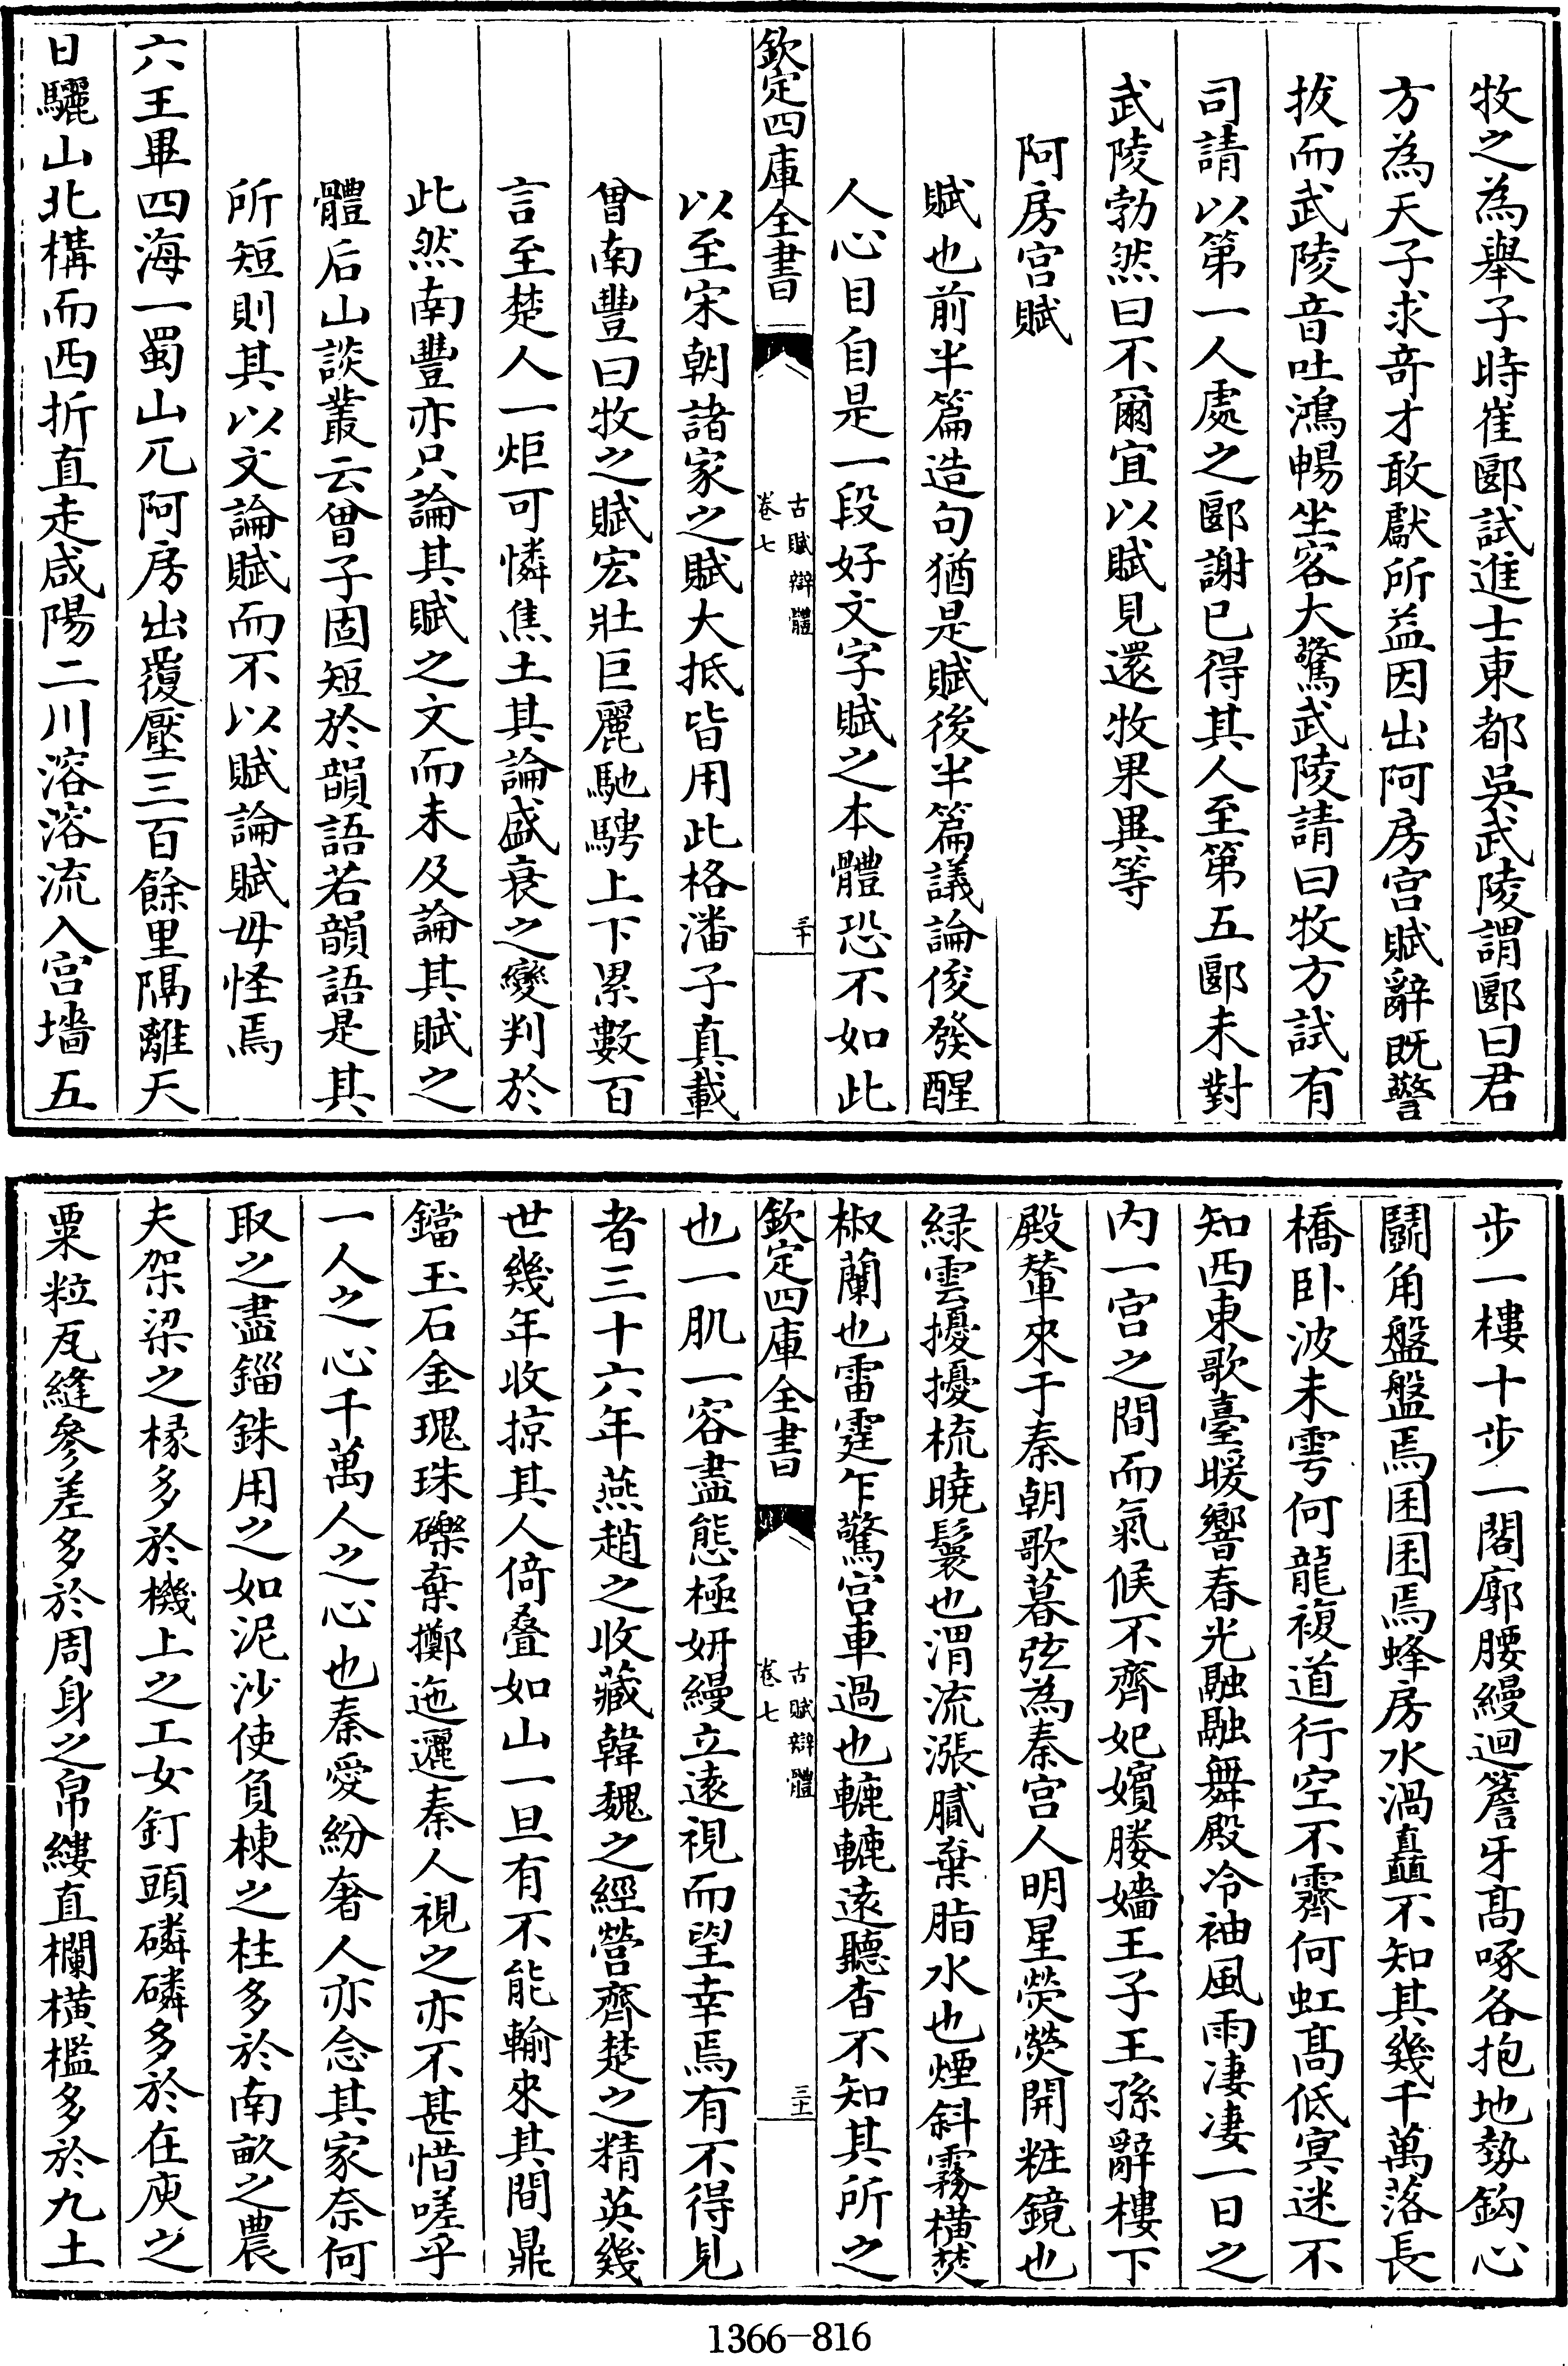 牧之為舉子時崔郾試進士東都吳武陵謂郾曰君
方為天子求竒才敢獻所益因出阿房宮賦辭既警
拔而武陵音吐鴻暢坐客大驚武陵請曰牧方試有
司請以第一人處之郾謝已得其人至第五郾未對
武陵勃然曰不爾宜以賦見還牧果異等
阿房宮賦
賦也前半篇造句猶是賦後半篇議論俊發醒
人心目自是一段好文字賦之本體恐不如此
欽定四庫全書
古賦辯體
卷七
三十
以至宋朝諸家之賦大抵皆用此格潘子真載
曾南豐曰牧之賦宏壯巨麗馳騁上下累數百
言至楚人一炬可憐焦土其論盛衰之變判於
此然南豐亦只論其賦之文而未及論其賦之
體后山談叢云曾子固短於韻語若韻語是其
所短則其以文論賦而不以賦論賦毋怪焉
六王畢四海一蜀山兀阿房出覆壓三百餘里隔離天
日驪山北構而西折直走咸陽二川溶溶流入宮墻五
步一樓十步一閣廓腰縵迴簷牙髙啄各抱地勢鈎心
鬭角盤盤焉囷囷焉蜂房水渦矗不知其幾千萬落長
橋卧波未雩何龍複道行空不霽何虹髙低冥迷不
知西東歌臺暖響春光融融舞殿冷袖風雨凄凄一日之
内一宮之間而氣候不齊妃嬪媵嬙王子王孫辭樓下
殿輦來于秦朝歌暮弦為秦宮人明星熒熒開粧鏡也
緑雲擾擾梳曉鬟也渭流漲膩棄脂水也煙斜霧橫焚
椒蘭也雷霆乍驚宮車過也轆轆遠聽杳不知其所之
欽定四庫全書
古賦辯體
卷七
三十一
也一肌一容盡態極妍縵立逺視而望幸焉有不得見
者三十六年燕趙之收藏韓魏之經營齊楚之精英幾
世幾年收掠其人倚叠如山一旦有不能輸來其間鼎
鐺玉石金瑰珠礫棄擲迤邐秦人視之亦不甚惜嗟乎
一人之心千萬人之心也秦愛紛奢人亦念其家奈何
取之盡錙銖用之如泥沙使負棟之柱多於南畝之農
夫架梁之椽多於機上之工女釘頭磷磷多於在庾之
粟粒瓦縫參差多於周身之帛縷直欄橫檻多於九土
1366-816